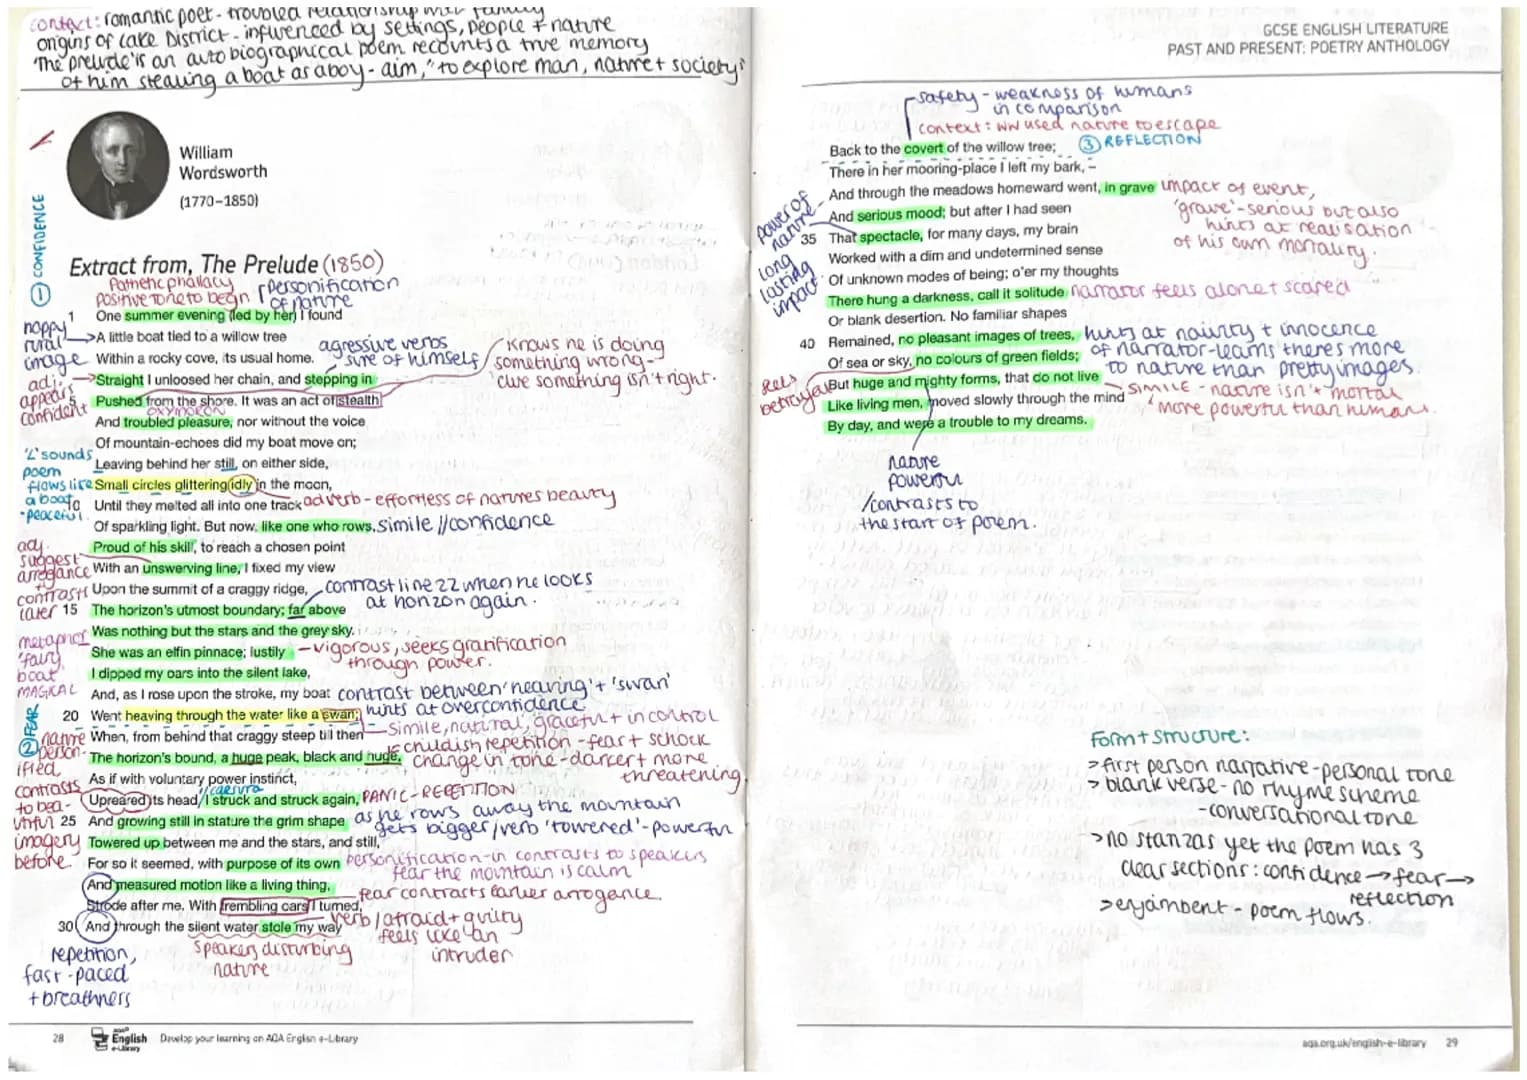 context: romantic poet - troubled relationship with family
origins of Lake District - influenced by settings, people + nature
'The prelude' is an autobiographical poem recounts a true memory
of him stealing a boat as a boy - aim, "to explore man, nature + society"
William
Wordsworth
(1770–1850)
① CONFIDENCE
Extract from, The Prelude (1850)
Pathetic phallacy
positive tone to begin
personification
of nature
1 One summer evening (led by her) I found
happy
rural
image
A little boat tied to a willow tree
Within a rocky cove, its usual home.
agressive verbs
sure of himself
knows he is doing
something wrong -
clue something isn't right.
adj -
appears
confident
Straight I unloosed her chain, and stepping in
5 Pushed from the shore. It was an act of stealth
oxymoron
And troubled pleasure, nor without the voice
Of mountain-echoes did my boat move on;
'L' sounds
poem
flows like
a boat
- peaceful.
Leaving behind her still, on either side,
Small circles glittering idly in the moon,
10 Until they melted all into one track
adverb - effortless of natures beauty
Of sparkling light. But now, like one who rows,
simile // confidence
Proud of his skill, to reach a chosen point
adj.
suggest
arrogance
With an unswerving line, I fixed my view
contrasts
later
Upon the summit of a craggy ridge,
contrast line 22 when he looks
at horizon again.
15 The horizon's utmost boundary; far above
Was nothing but the stars and the grey sky.
metaphor
'fairy
boat
MAGICAL
She was an elfin pinnace; lustily
- vigorous, seeks gratification
through power.
I dipped my oars into the silent lake,
And, as I rose upon the stroke, my boat
contrast between 'heaving' + 'swan'
hints at overconfidence
20 Went heaving through the water like a swan;
- simile, natural, graceful + in control
② FEAR
When, from behind that craggy steep till then
nature
person-
ified
contrasts
to bea-
utiful
imagery
before.
The horizon's bound, a huge peak, black and huge,
childish repetition - fear + schock
change in tone - darker + more
threatening.
As if with voluntary power instinct,
caesura
Upreared its head. I struck and struck again,
PANIC - REPETITION
25 And growing still in stature the grim shape
as he rows away the mountain
gets bigger / verb 'towered' - powerful
Towered up between me and the stars, and still,
For so it seemed, with purpose of its own
personification - in contrasts to speakers
fear the mountain is calm
And measured motion like a living thing,
Strode after me. With trembling oars I turned,
fear contrasts earlier arrogance.
30 And through the silent water stole my way
verb / afraid + guilty
feels like an
intruder
speakers disturbing
nature
repetition,
fast-paced
+ breathness
28
aqa
English
e-Library
Develop your learning on AQA English e-Library
GCSE ENGLISH LITERATURE
PAST AND PRESENT: POETRY ANTHOLOGY
safety - weakness of humans
in comparison
context: WW used nature to escape
Back to the covert of the willow tree;
③ REFLECTION
There in her mooring-place I left my bark, –
And through the meadows homeward went, in grave
impact of event,
'grave' - serious but also
hints at realisation
of his own mortality.
power of
nature
long
lasting
impact
And serious mood; but after I had seen
35 That spectacle, for many days, my brain
Worked with a dim and undetermined sense
Of unknown modes of being; o'er my thoughts
There hung a darkness, call it solitude
narrator feels alone + scared
Or blank desertion. No familiar shapes
40 Remained, no pleasant images of trees,
hints at naivity + innocence
of narrator - learns theres more
to nature than pretty images.
Of sea or sky, no colours of green fields;
feels
betrayed
But huge and mighty forms, that do not live
SIMILE - nature isn't mortal
'more powerful than humans.
Like living men, moved slowly through the mind
By day, and were a trouble to my dreams.
nature
powerful
/contrasts to
the start of poem.
form + structure:
> first person narrative - personal tone
> blank verse - no rhyme scheme
- conversational tone
> no stanzas yet the poem has 3
clear sections: confidence → fear →
reflection
> enjambent - poem flows.
aqa.org.uk/english-e-library 29